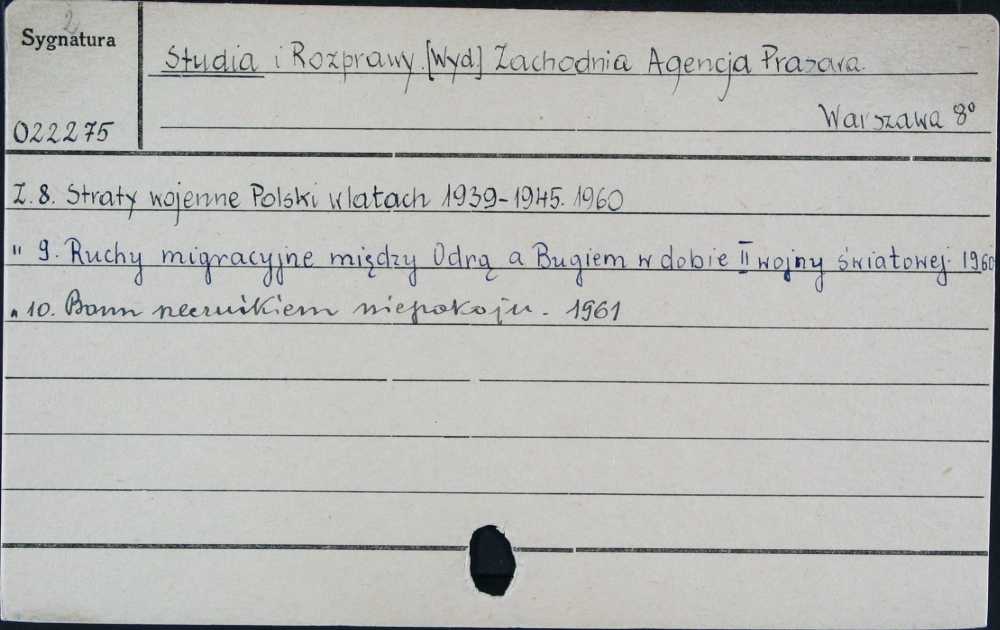 2
Sygnatura
Studia i Rozprawy. [Wyd] Zachodnia Agencja Prasowa.
022275
Warszawa 8°
Z. 8. Straty wojenne Polski w latach 1939-1945. 1960
" 9. Ruchy migracyjne między Odrą a Bugiem w dobie II wojny światowej. 1960
" 10. Bonn niepokoju. 1961